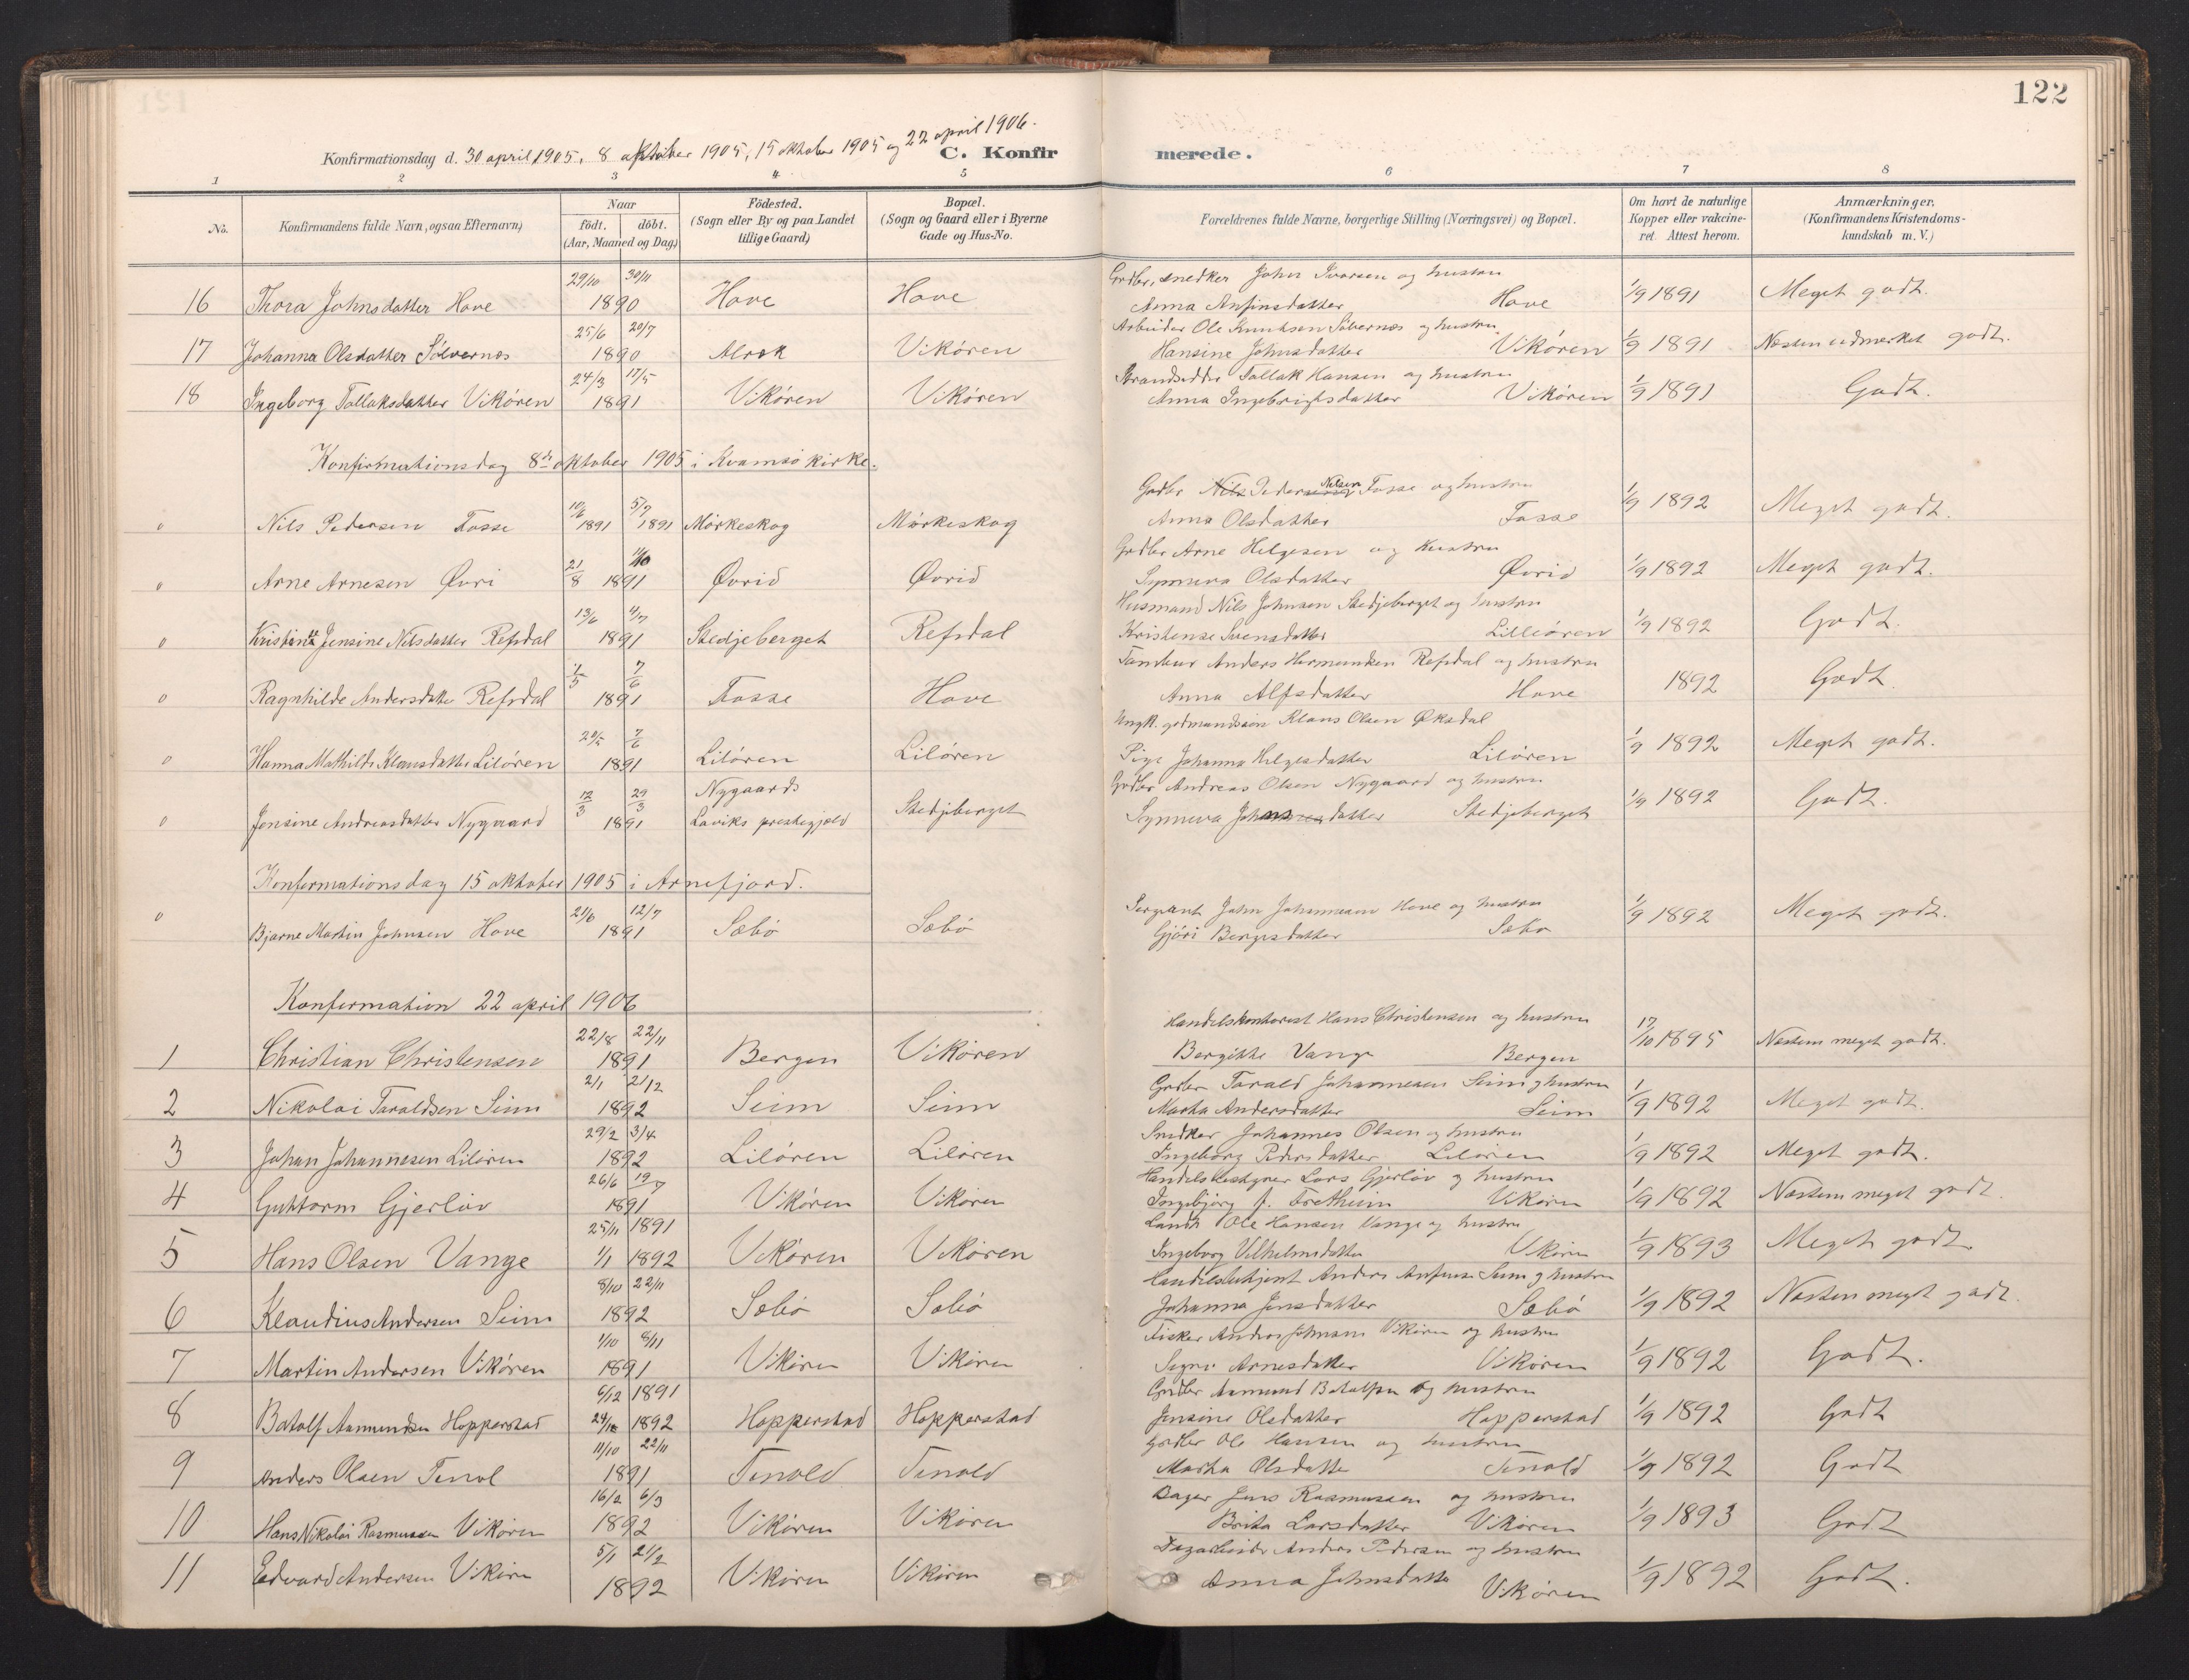 122
Konfirmationsdag d. 30 april 1905, 8 oktober 1905, 15 oktober 1905 og 22 april 1906.
C. Konfirmerede.
1 2 3 4 5 6 7 8
No.
Konfirmandens fulde Navn, ogsaa Efternavn)
Naar
födt. döbt.
(Aar, Maaned og Dag)
Födested.
(Sogn eller By og paa Landet
tillige Gaard)
Bopæl.
(Sogn og Gaard eller i Byerne
Gade og Hus-No.
Forældrenes fulde Navne, borgerlige Stilling (Næringsvei) og Bopæl.
Om havt de naturlige
Kopper eller vakcine-
ret. Attest herom.
Anmærkninger.
(Konfirmandens Kristendoms-
kundskab m. V.)
29/10 30/11 Grdbr, snedker John Ivarsen og hustru
16 Thora Johnsdatter Hove 1890 Hove Hove Anna Anfinsdatter Hove 1/9 1891 Meget godt.
25/6 20/7 Arbeider Ole Knutsen Sölvernes og hustru
17 Johanna Olsdatter Sölvernos 1890 Alrek Vikören Hansine Johnsdatter Vikören 1/9 1891 Næsten udmerket godt.
24/3 17/5 Strandsidder Tollak Hansen og hustru
18 Ingeborg Tollaksdatter Vikören 1891 Vikören Vikören Anna Ingebrigtsdatter Vikören 1/9 1891 Godt.
Konfirmationsdag 8de oktober 1905 i Kvamsö kirke.
10/6 5/7 Grdbr Nils Peder Nilsen Fosse og hustru
" Nils Pedersen Fosse 1891 1891 Mörkeskog Mörkeskog Anna Olsdatter Fosse 1/9 1892 Meget godt.
21/8 11/10 Grdbr Arne Helgesen og hustru
" Arne Arnesen Øvri 1891 Øvrid Øvrid Synneva Olsdatter Øvrid 1/9 1892 Meget godt.
13/6 4/7 Husmand Nils Johnsen Stedjeberget og hustru
" Kristine Jensine Nilsdatter Refsdal 1891 Stedjeberget Refsdal Kristense Svensdatter Lilleören 1/9 1892 Godt.
1/5 7/6 Tambur Anders Hermundsen Refsdal og hustru
" Ragnhilde Andersdatter Refsdal 1891 Fosse Hove Anna Alfsdatter Hove 1892 Godt.
20/5 7/6 Ungk. gdmandssön Klaus Olsen Øksdal
" Hanna Mathilde Klausdatter Lilören 1891 Lilören Lilören Pige Johanna Helgesdatter Lilören 1/9 1892 Meget godt.
12/3 29/3 Nygaards Grdbr Andreas Olsen Nygaard og hustru
" Jensine Andreasdatter Nygaard 1891 Laviks prestegjæld Stedjeberget Synneva Johansdatter Stedjeberget 1/9 1892 Godt.
Konfermationsdag 15 oktober 1905 i Arnefjord.
21/6 12/7 Sergeant John Johannesen Hove og hustru
" Bjarne Martin Johnsen Hove 1891 Sæbö Sæbö Gjöri Bergesdatter Sæbö 1/9 1892 Meget godt.
Konfermation 22 april 1906
22/8 22/11 Handelskontorist Hans Christensen og hustru
1 Christian Christensen 1891 Bergen Vikören Bergitte Vange Bergen 17/10 1895 Næsten meget godt.
2/1 21/2 Grdbr Tarald Johannesen Seim og hustru
2 Nikolai Taraldsen Seim 1892 Seim Seim Martha Andersdatter Seim 1/9 1892 Meget godt.
29/2 3/4 Snedker Johannes Olsen og hustru
3 Johan Johannesen Lilören 1892 Lilören Lilören Ingeborg Pedersdatter Lilören 1/9 1892 Meget godt.
26/6 19/7 Handelsbestyrer Lars Gjerlöv og hustru
4 Guttorm Gjerlöv 1891 Vikören Vikören Ingebjörg f. Fretheim Vikören 1/9 1892 Næsten meget godt.
25/11 1891 Ole Hansen Vange og hustru
5 Hans Olsen Vange 1/1 1892 Vikören Vikören Ingeborg Vilhelmsdatter Vikören 1/9 1893 Meget godt
8/10 22/11 Handelsbetjent Anders Anfinsen Seim og hustru
6 Klaudius Andersen Seim 1892 Sæbö Sæbö Johanna Jensdatter Sæbö 1/9 1892 Næsten meget godt.
1/10 8/11 Fisker Anders Johnsen Vikören og hustru
7 Martin Andersen Vikören 1891 Vikören Vikören Signi Arnesdatter Vikören 1/9 1892 Godt.
6/12 1891 Grdbr Aamund Botolfsen og hustru
8 Botolf Aamundsen Hopperstad 24/1 1892 Hopperstad Hopperstad Jensine Olsdatter Hopperstad 1/9 1892 Godt
11/10 22/11 Grdbr Ole Hansen og hustru
9 Anders Olsen Tenol 1891 Tenold Tenold Martha Olsdatter Tenold 1/9 1892 Godt
16/2 6/3 Bager Jens Rasmussen og hustru
10 Hans Nikolai Rasmussen Vikören 1892 Vikören Vikören Brita Larsdatter Vikören 1/9 1893 Godt
5/1 21/2 Dagarbeider Anders Pedersen og hustru
11 Edvard Andersen Vikören 1892 Vikören Vikören Anna Johnsdatter Vikören 1/9 1892 Godt.